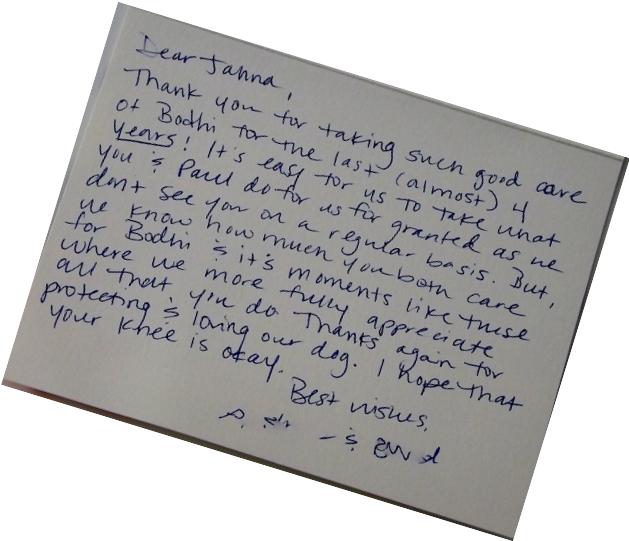 Dear Jahna,
Thank you for taking such good care
of Bodhi for the last (almost) 4
years! It's easy for us to take what
you & Paul do for us for granted as we
don't see you on a regular basis. But,
we know how much you both care
for Bodhi & it's moments like these
where we more fully appreciate
all that you do. Thanks again for
protecting & loving our dog. I hope that
your knee is okay.
Best wishes,
&